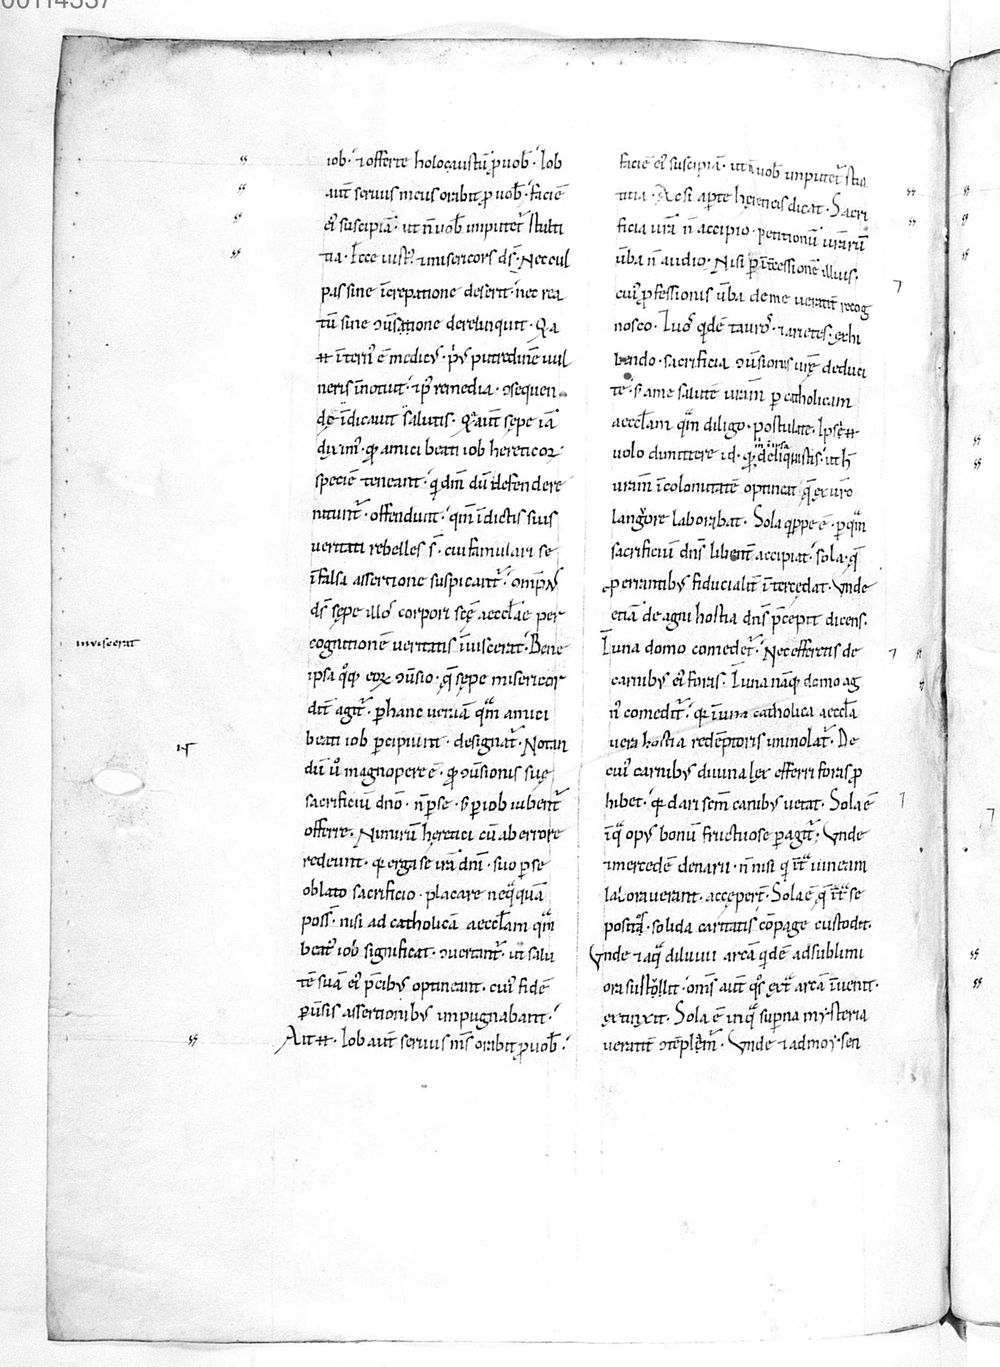 00114337
iob· ⁊ offerte holocaustū ꝓ uob̄· Iob
aut̄ seruus meus orabit ꝓ uob̄· faciē
ei᷒ suscipiā· ut n̄ uob̄ imputet᷑ stulti
tia· Ecce iust᷒ ⁊ misericors ds̄· nec cul
pas sine īcrepatione deserit· nec rea
tū sine ꝯuersatione dereliquit· Qa
ī terris ē medic᷒· pri᷒ putredinē uul
neris īnotuit· ⁊ ꝑ remedia· ꝯsequen
de īdicauit salutis· Q aut̄ sepe iā
dixim᷒· qđ amici beati iob hereticoꝝ
speciē teneant· qui dm̄ dū defendere
nitunt᷑· offendunt· qm̄ ī dictis suis
ueritati rebelles s̄· cui famulari se
ī falsa assertione suspicant᷑·
ds̄ sepe illos corpori scę aeccl̄ae per
cognitionē ueritatis īuiscerat· Bene
ipsa q̊q; eoꝝ ꝯuersio· quę sepe misericor
dit agit᷑· ꝑ hanc ueniā quā amici
beati iob ꝑcipiunt· designat᷑· Notan
dū ů magnopere ē· qđ ꝯuersionis suę
sacrificiū dn̄o· n̄ ꝑ se· s; ꝑ iob iubent᷑
offerre· Nimirū heretici cū ab errore
redeunt· qđ erga se irā dn̄i· suo ꝑ se
oblato sacrificio· placare neq̄quā
poss̄· nisi ad catholicā aeccl̄am quā
beat᷒ iob significat· ꝯuertant᷑· ut salu
tē suā ei᷒ p̄cib᷒ optineant· cui᷒ fidē
ꝑuersis assertionib᷒ impugnabant·
Ait· Iob aut̄ seruus m̄s orabit ꝓ uob̄·
inuiscerat
faciē ei᷒ suscipiā· ut n̄ uob̄ imputet᷑ stul
titia· Ac si aperte hereticis dicat· Sacri
ficia urā n̄ accipio· petitionū urarū
uba n̄ audio· Nisi ꝑ īt̄cessionē illius·
cui᷒ ꝓfessionis uba de me ueraciter recog
nosco· Tuos quidē tauros· ⁊ arietes· exhi
bendo· sacrificia ꝯuersionis urę deduci
te· s; a me salutē uram̄ ꝑ catholicam
aeccl̄am quā diligo· postulate· Ipse
uolo dimittere id· qđ in ipsa deliquistis· ut h̄
uram̄ īcolumitatē optineat quę ex uro
langore laborabat· Sola quippe ē· ꝑ quā
sacrificiū dn̄s libent̄ accipiat· sola· quę
ꝓ errantib᷒ fiducialit̄ īt̄cedat· Unde
etiā de agni hostia dn̄s p̄cepit dicens·
In una domo comedet᷑· Nec efferetis de
carnib᷒ ei᷒ foras· In una nāq; domo ag
n᷒ comedit᷑· qđ ī una catholica aeccl̄a
uera hostia redēptoris immolat᷑· De
cui᷒ carnib᷒ diuina lex efferri foras ꝓ
hibet· qđ dari scm̄ canib᷒ uetat· Sola ē
ī quā op᷒ bonū fructuose ꝑagit᷑· Unde
⁊ mercedē denarii· n̄ nisi q īt̄ uineam
laborauerant· acceper̄t· Sola ē quę īt̄ se
positos· solida caritatis cōpage custodit·
Unde ⁊ aqua diluuii arcā quidē ad sublimi
ora sustollit· omīs aut̄ quos ext̄ arcā īuenit·
extinxit· Sola ē in quā superna mysteria
ueracit̄ ꝯtēplem̄· Unde ⁊ ad moysen